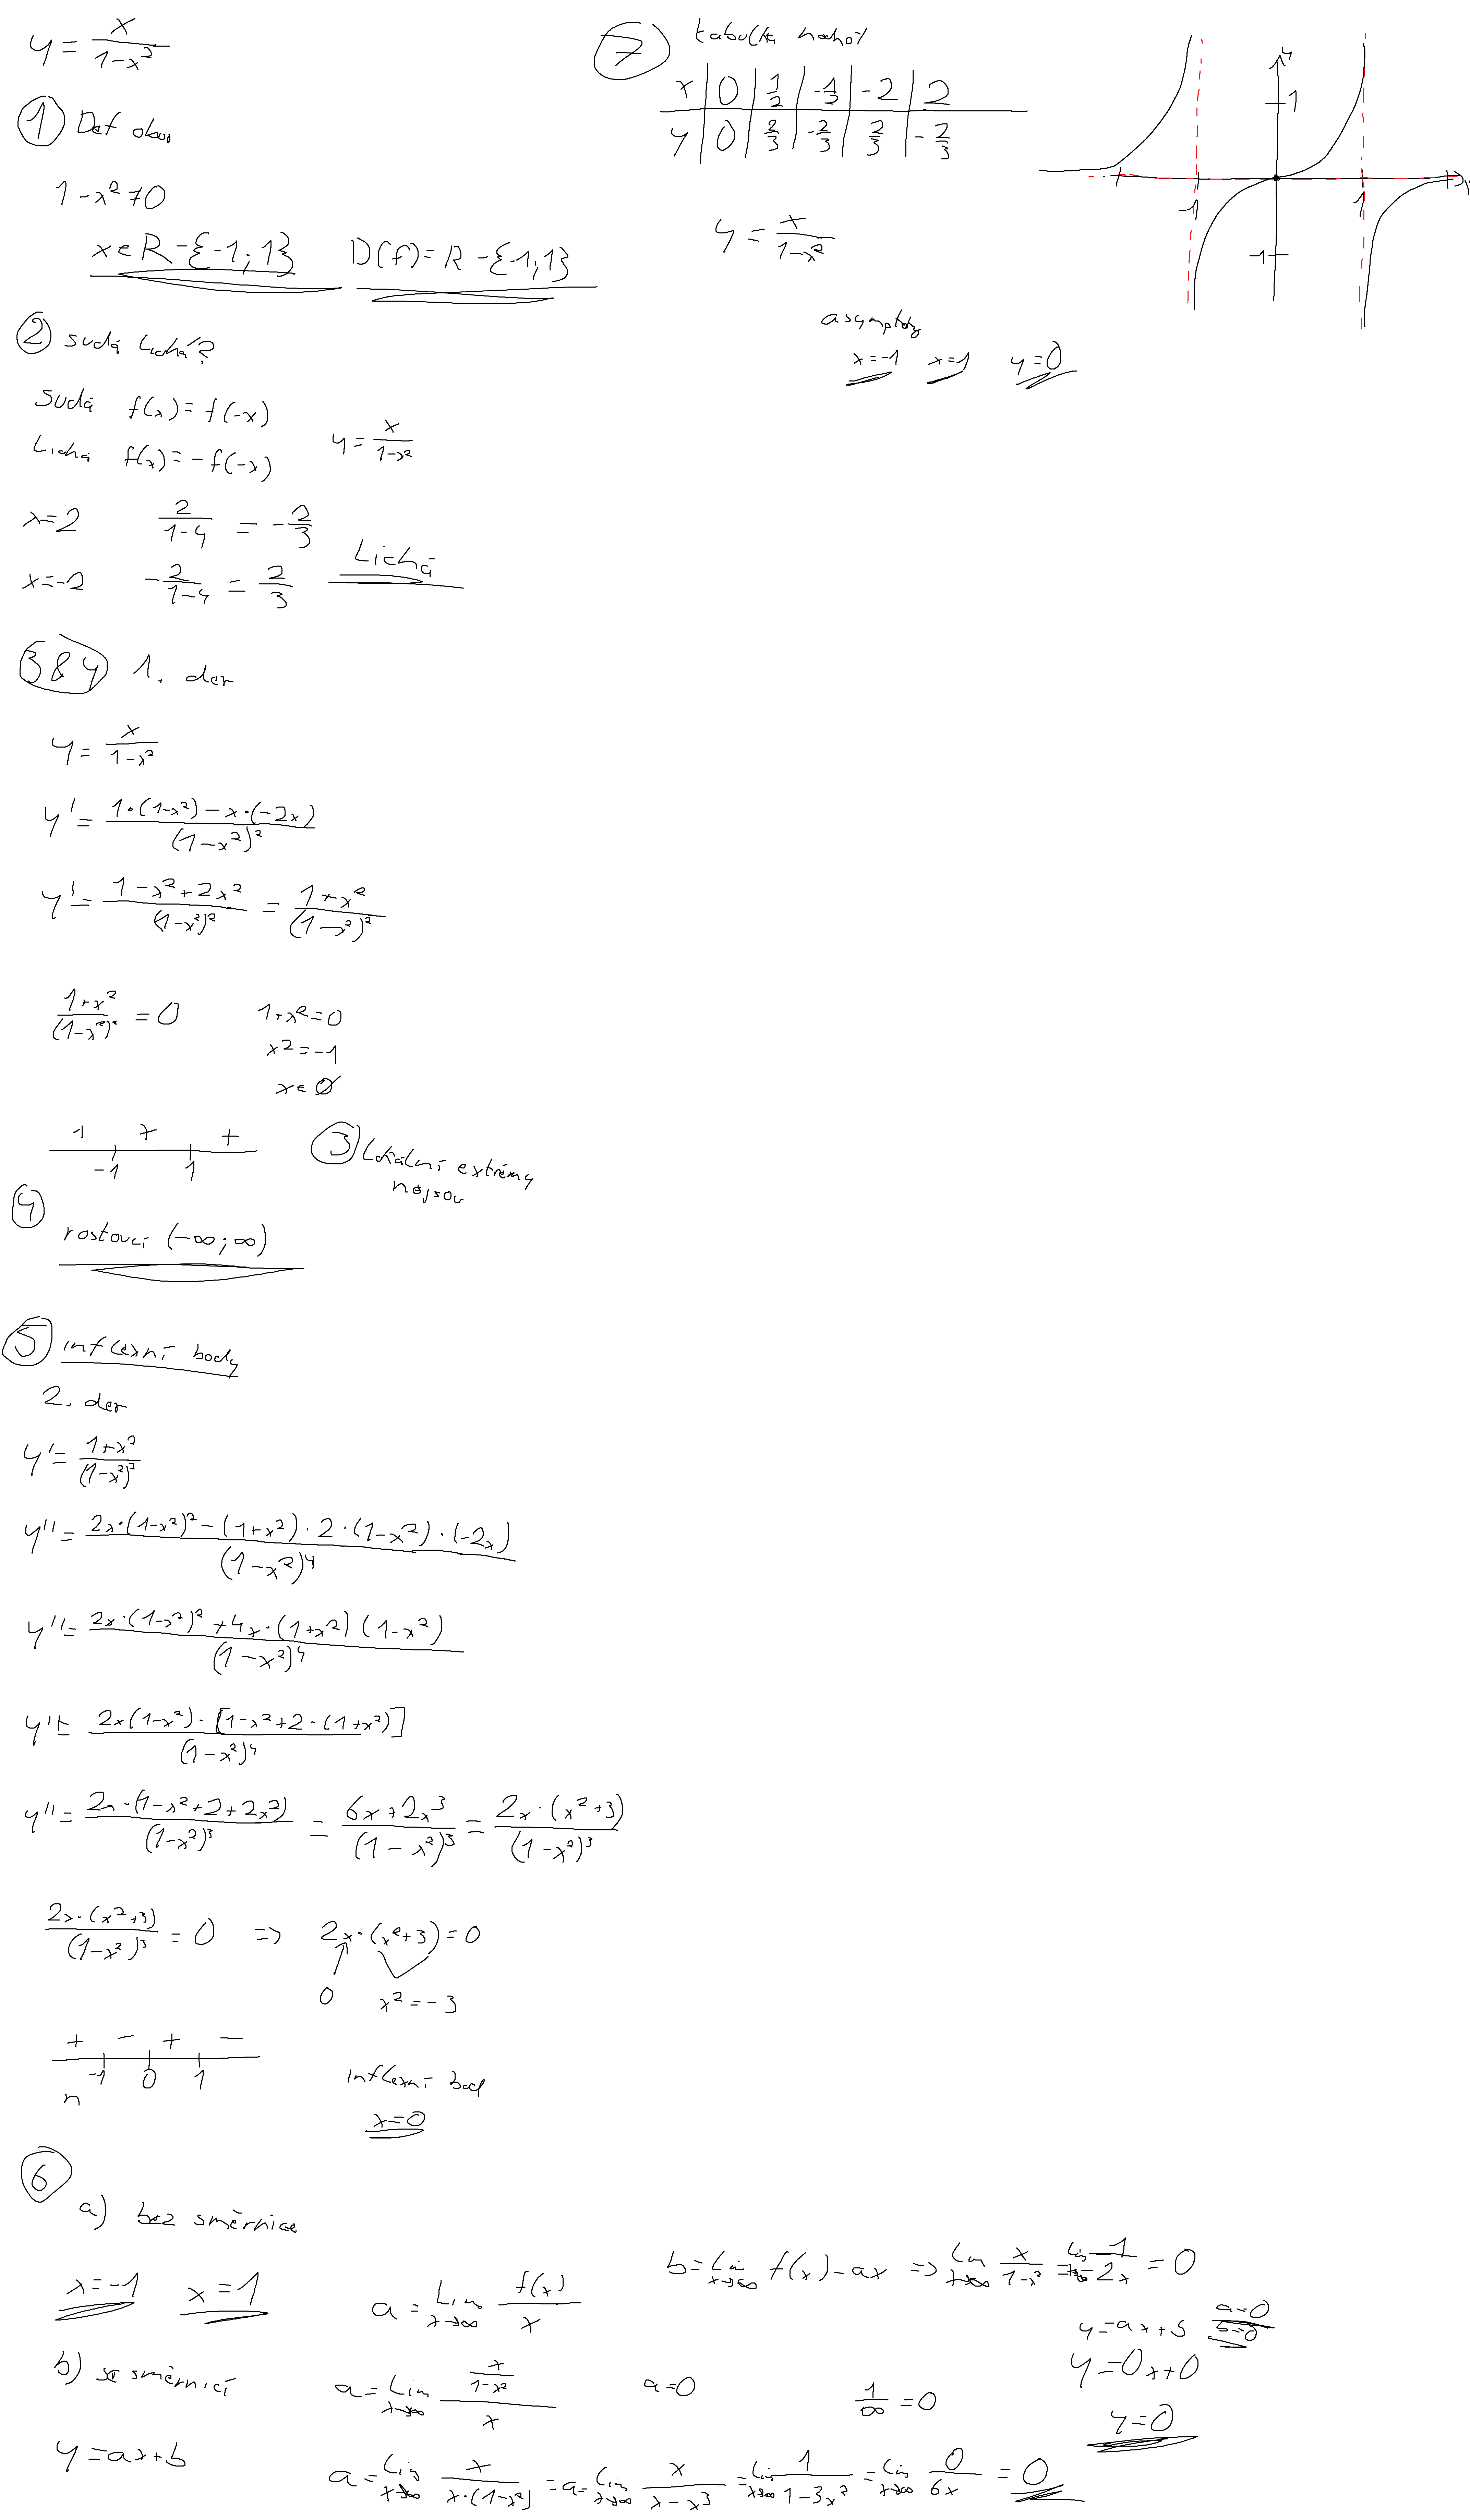 y = x/(1-x²)
① Def obor
1-x² ≠ 0
x∈R-{-1;1} D(f)=R-{-1;1}
② sudá lichá?
sudá f(x)=f(-x)
Lichá f(x)=-f(-x) y = x/(1-x²)
x=2 2/(1-4) = -2/3
x=-2 -2/(1-4) = 2/3 Lichá
3&4 1. der
y = x/(1-x²)
y' = (1·(1-x²)-x·(-2x))/(1-x²)²
y' = (1-x²+2x²)/(1-x²)² = (1+x²)/(1-x²)²
(1+x²)/(1-x²)² = 0 1+x²=0
x²=-1
x∈∅
+ + +
-1 1
③ Lokální extrémy
nejsou
④
rostoucí (-∞;∞)
⑤ inflexní body
2. der
y' = (1+x²)/(1-x²)²
y'' = (2x·(1-x²)²-(1+x²)·2·(1-x²)·(-2x))/(1-x²)⁴
y'' = (2x·(1-x²)²+4x·(1+x²)(1-x²))/(1-x²)⁴
y'' = (2x(1-x²)·[1-x²+2·(1+x²)])/(1-x²)⁴
y'' = (2x·(1-x²+2+2x²))/(1-x²)³ = (6x+2x³)/(1-x²)³ = (2x·(x²+3))/(1-x²)³
(2x·(x²+3))/(1-x²)³ = 0 => 2x·(x²+3)=0
0 x²=-3
+ - + -
-1 0 1
n
inflexní bod
x=0
⑥
a) bez směrnice
x=-1 x=1
b) se směrnicí
y=ax+b
a = lim x→∞ f(x)/x
a = lim x→∞ (x/(1-x²))/x a=0 1/∞ = 0
a = lim x→∞ x/(x·(1-x²)) = a = lim x→∞ x/(x-x³) = lim x→∞ 1/(1-3x²) = lim x→∞ 0/6x = 0
b = lim x→∞ f(x)-ax => lim x→∞ x/(1-x²) = lim x→∞ 1/-2x = 0
y=ax+b a=0 b=0
y=0x+0
y=0
⑦ tabulka
x 0 1/2 -1/2 -2 2
y 0 2/3 -2/3 2/3 -2/3
y = x/(1-x²)
asymptoty
x=-1 x=1 y=0
y
1
-1 1 x
-1